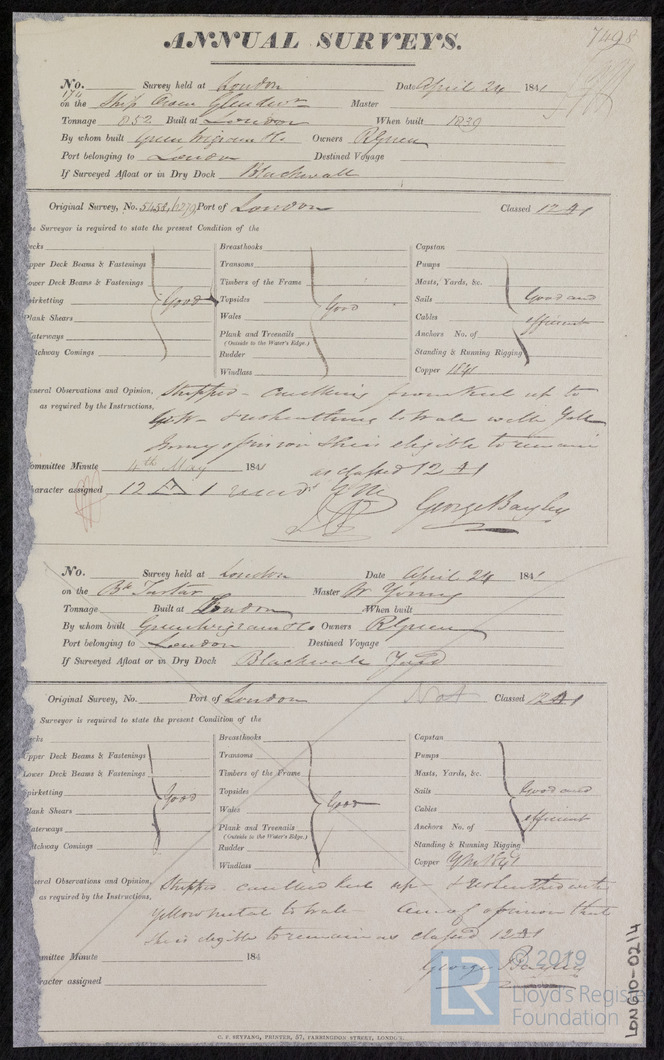 ANNUAL SURVEYS.
7498
No. 174 Survey held at London Date April 24 1841
on the Ship Owen Glendwr Master
Tonnage 852 Built at London When built 1839
By whom built Green Wigram & Co Owners R Green
Port belonging to London Destined Voyage
If Surveyed Afloat or in Dry Dock Blackwall
Original Survey, No. 5458, Port of London Classed 12 A1
he Surveyor is required to state the present Condition of the
ecks
pper Deck Beams & Fastenings
ower Deck Beams & Fastenings
pirketting
Plank Shears
aterways
tchway Comings
Good
Breasthooks
Transoms
Timbers of the Frame
Topsides
Wales
Plank and Treenails
(Outside to the Water's Edge.)
Rudder
Windlass
Good
Capstan
Pumps
Masts, Yards, &c.
Sails
Cables
Anchors No. of
Standing & Running Rigging
Copper 1841
Good and
efficient
eneral Observations and Opinion,
as required by the Instructions,
Stripped - caulking from Keel up to
& resheathing to Wale with Yell
In my opinion She is eligible to remain
as classed 12 A1
ommittee Minute 4th May 1841
aracter assigned 12 A 1
George Bayley
No. Survey held at London Date April 24 1841
on the Bk Tartar Master W Young
Tonnage Built at London When built
By whom built Green Wigram & Co Owners R Green
Port belonging to London Destined Voyage
If Surveyed Afloat or in Dry Dock Blackwall Yard
Original Survey, No. Port of London Not Classed 12 A1
Surveyor is required to state the present Condition of the
cks
pper Deck Beams & Fastenings
ower Deck Beams & Fastenings
pirketting
lank Shears
aterways
tchway Comings
Good
Breasthooks
Transoms
Timbers of the Frame
Topsides
Wales
Plank and Treenails
(Outside to the Water's Edge.)
Rudder
Windlass
Good
Capstan
Pumps
Masts, Yards, &c.
Sails
Cables
Anchors No. of
Standing & Running Rigging
Copper
Good and
efficient
eral Observations and Opinion,
as required by the Instructions,
Stripped - caulked keel up - & resheathed with
Yellow metal to wale - Am of opinion that
She is eligible to remain as classed 12 A1
mmittee Minute 184
racter assigned
George Bayley
C. F. SEYFANG, PRINTER, 57, FARRINGDON STREET, LONDON.
LON610-0214
LR
© 2019
Lloyd's Register
Foundation